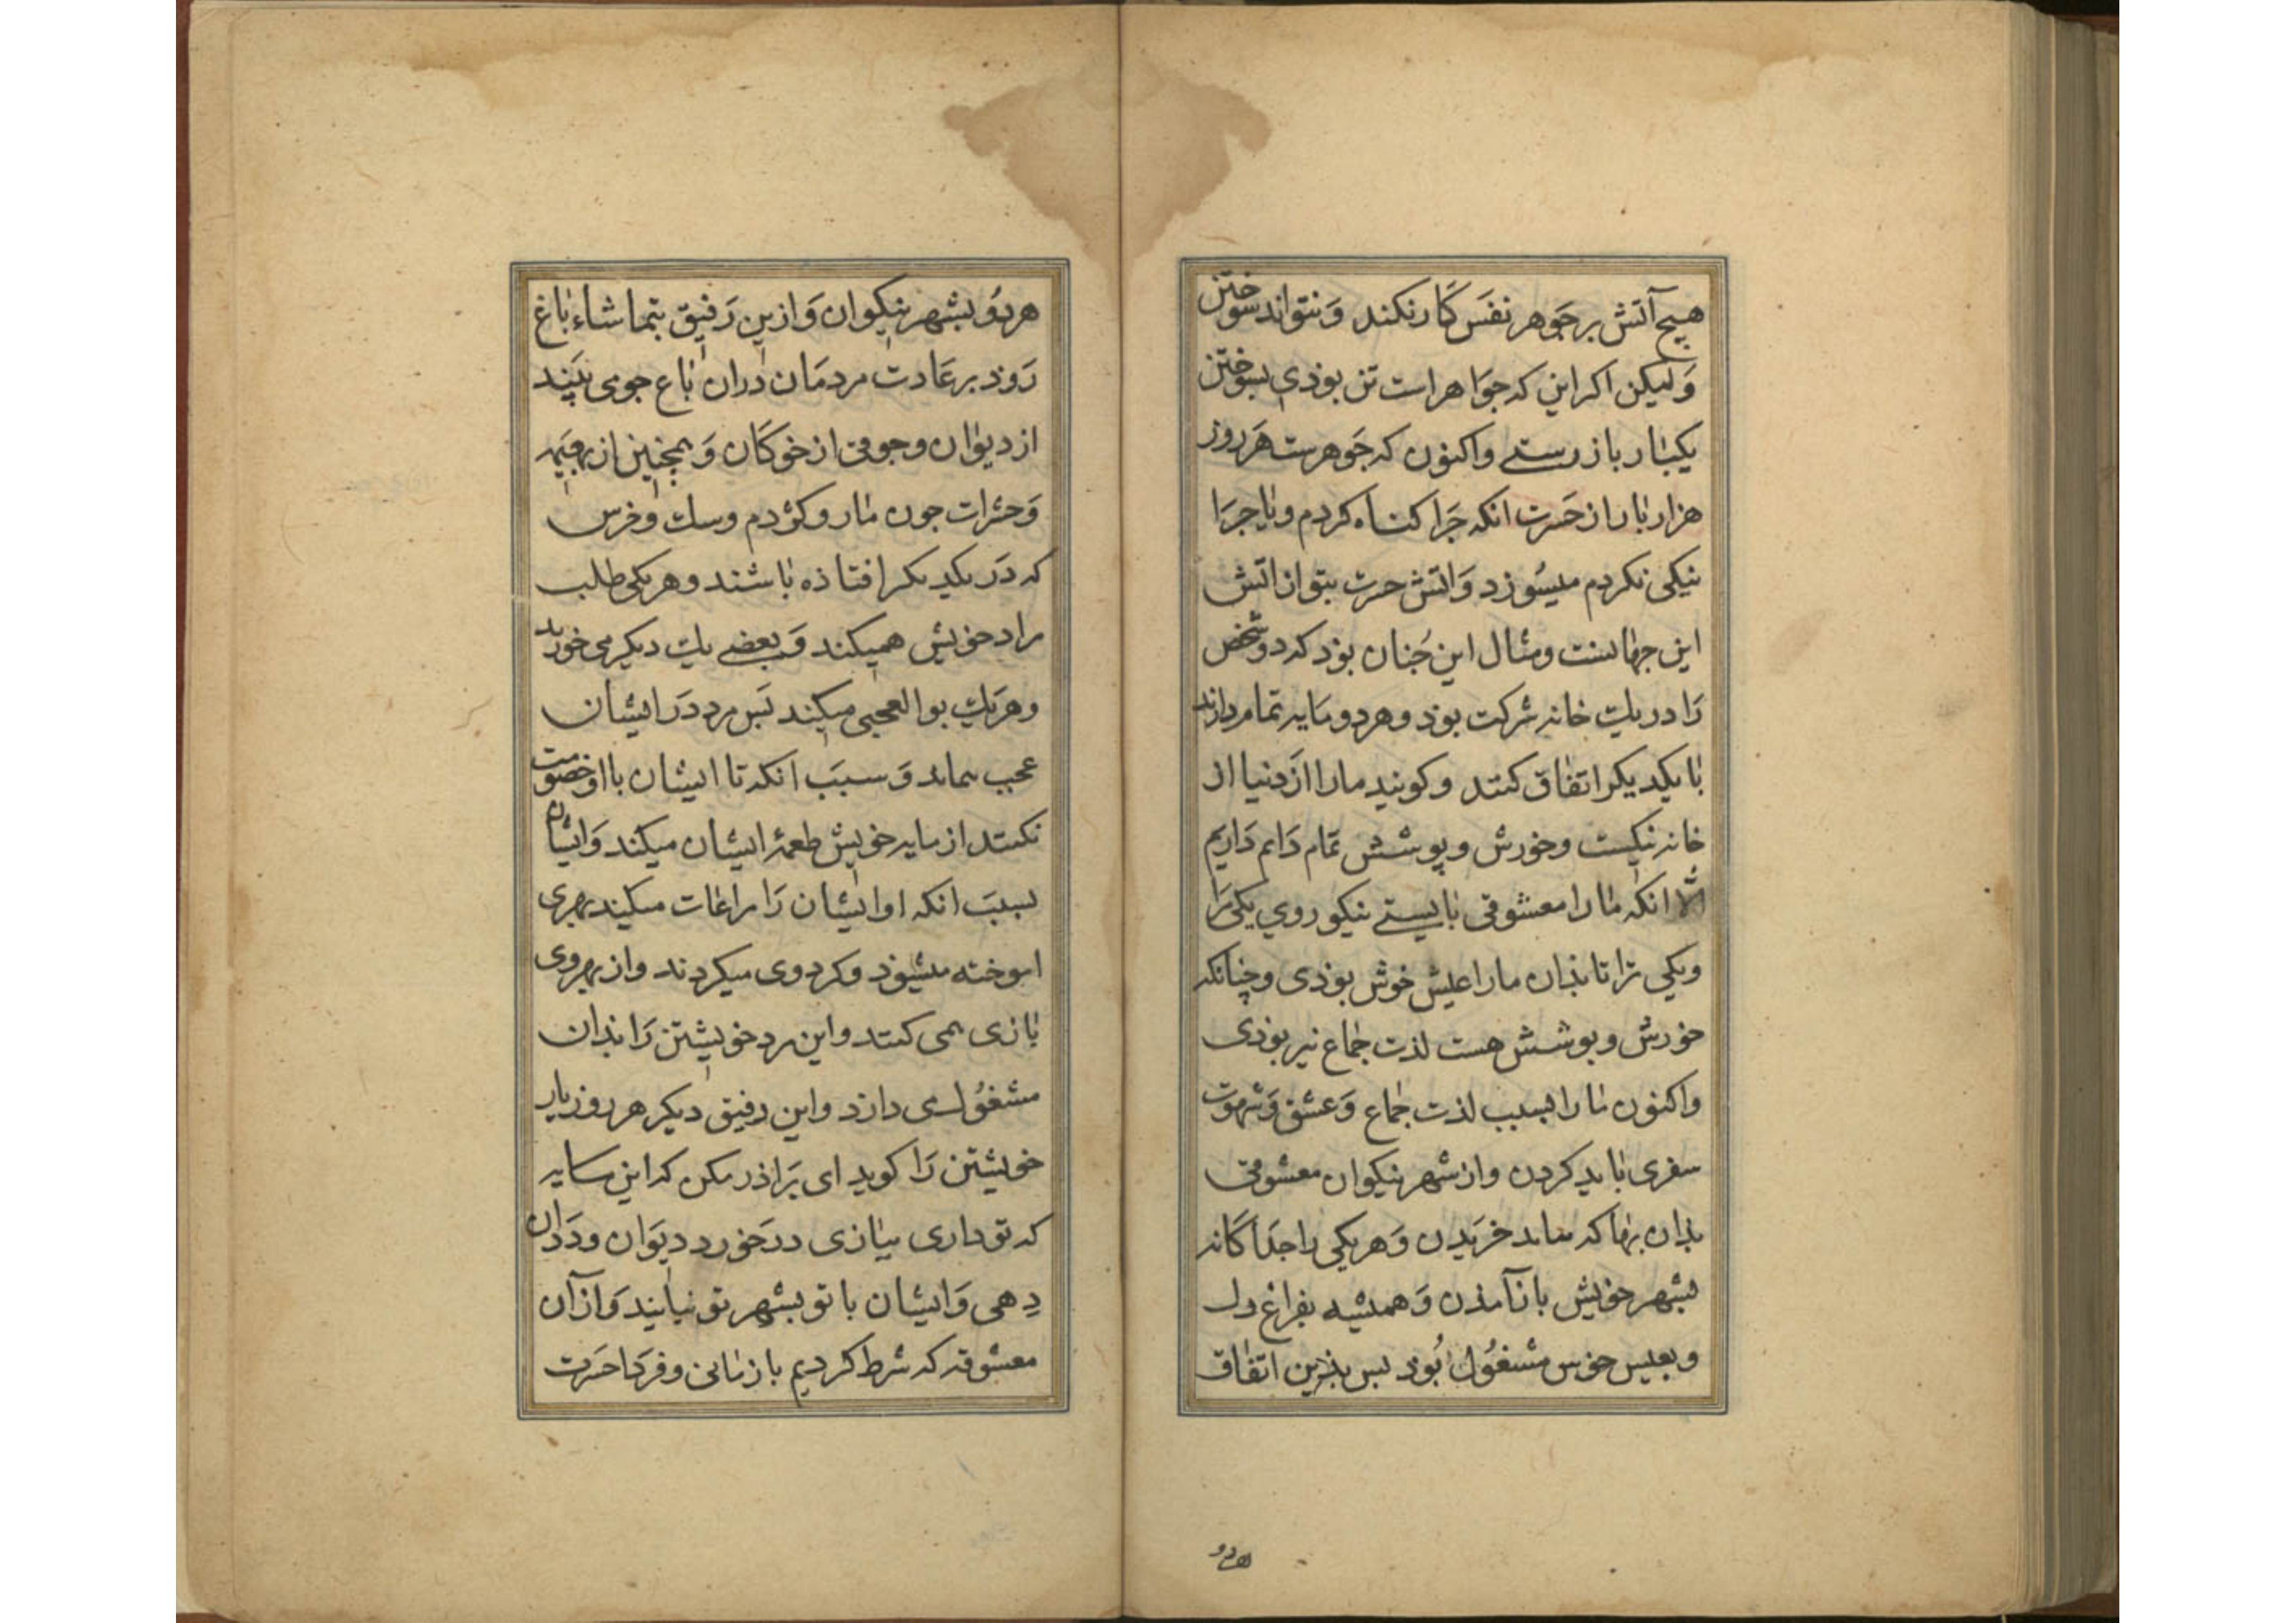 هیچ آتش بر جوهر نفس کار نکند و نتواند سوختن
ولیکن اکر این که جواهر است تن بوذی بسوختن
یکبار باز رستی واکنون که جوهرست هر روز
هزار بار از حسرت انکه جرا کناه کردم ویا جرا
نیکی نکردم میسوزد واتش حسرت بتر از اتش
این جهانست ومثال این جنان بوذ که دو شخص
را در یک خانه شرکت بوذ وهر دو مایه تمام دارند
با یکدیکر اتفاق کنند وکویند مارا از دنیا از
خانه نیکست وخورش وپوشش تمام داریم
الا انکه مارا معشوقی بایستی نیکو روی یکی مرا
ویکی ترا تا بذان مارا عیش خوش بوذی وچنانکه
خورش وبوشش هست لذت جماع نیز بوذی
واکنون مارا بسبب لذت جماع وعشق وشهوت
سفری باید کردن واز شهر نیکوان معشوقی
بذان بها که بیابد خریدن وهر یکی را جداکانه
بشهر خویش باز آمذن وهمیشه بفراغ دل
وبعیس خوس مشغول بوذ بس بذین اتفاق
هر دو
هر دو بشهر نیکوان واز این رفیق بتماشاء باغ
روذ بر عادت مردمان دران باغ جوقی بیند
از دیوان وجوقی از خوکان وهمچنین از بهیمه
وحشرات جون مار وکژدم وسک وخرس
که در یکدیکر افتاذه باشند وهر یکی طلب
مراد خویش همیکند وبعضی یک دیکر می خورند
وهر یک بوالعجبی میکند بس مرد در ایشان
عجب بماند وسبب انکه تا ایشان با او خصومت
نکنند از مایه خویش طعمه ایشان میکند وایشان
بسبب انکه او ایشان را مراعات میکند بهری
اموخته میشوذ وکرد وی میکردند واز بهر وی
بازی همی کنند واین مرد خویشتن را بذان
مشغول می دارد واین رفیق دیکر هر روز یار
خویشتن را کوید ای براذر مکن که این مایه
که تو داری ببازی در خورد دیوان وددان
دهی وایشان با تو بشهر تو نیایند واز آن
معشوقه که شرط کردیم باز مانی وفردا حسرت